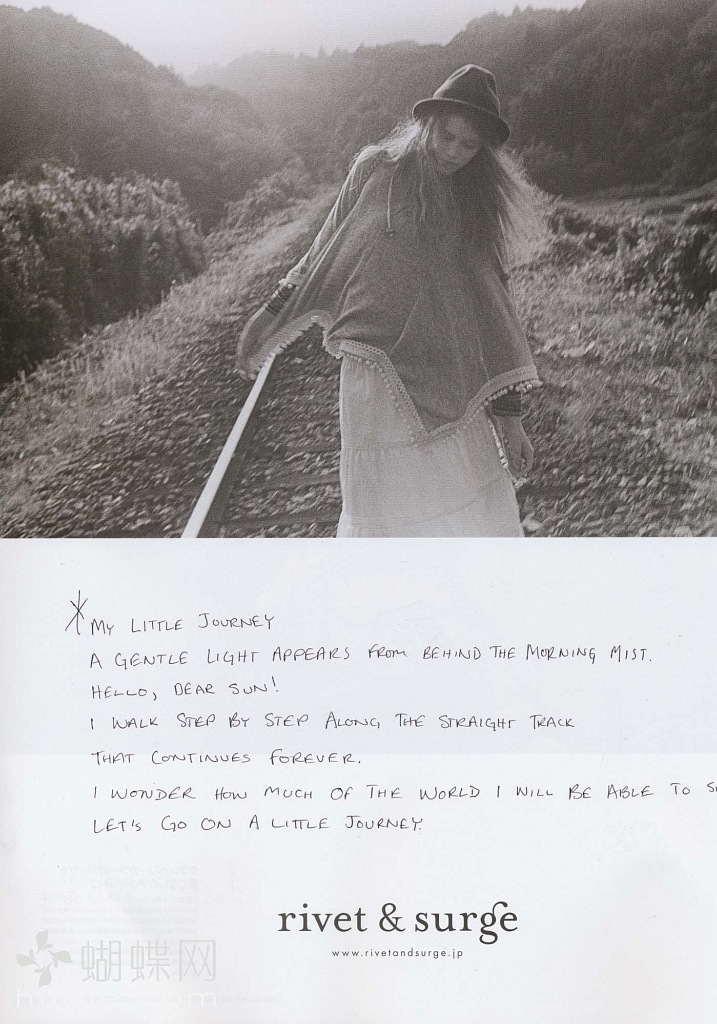 MY LITTLE JOURNEY
A GENTLE LIGHT APPEARS FROM BEHIND THE MORNING MIST.
HELLO, DEAR SUN!
I WALK STEP BY STEP ALONG THE STRAIGHT TRACK
THAT CONTINUES FOREVER.
I WONDER HOW MUCH OF THE WORLD I WILL BE ABLE TO
LET'S GO ON A LITTLE JOURNEY.
rivet & surge
www.rivetandsurge.jp
蝴蝶网